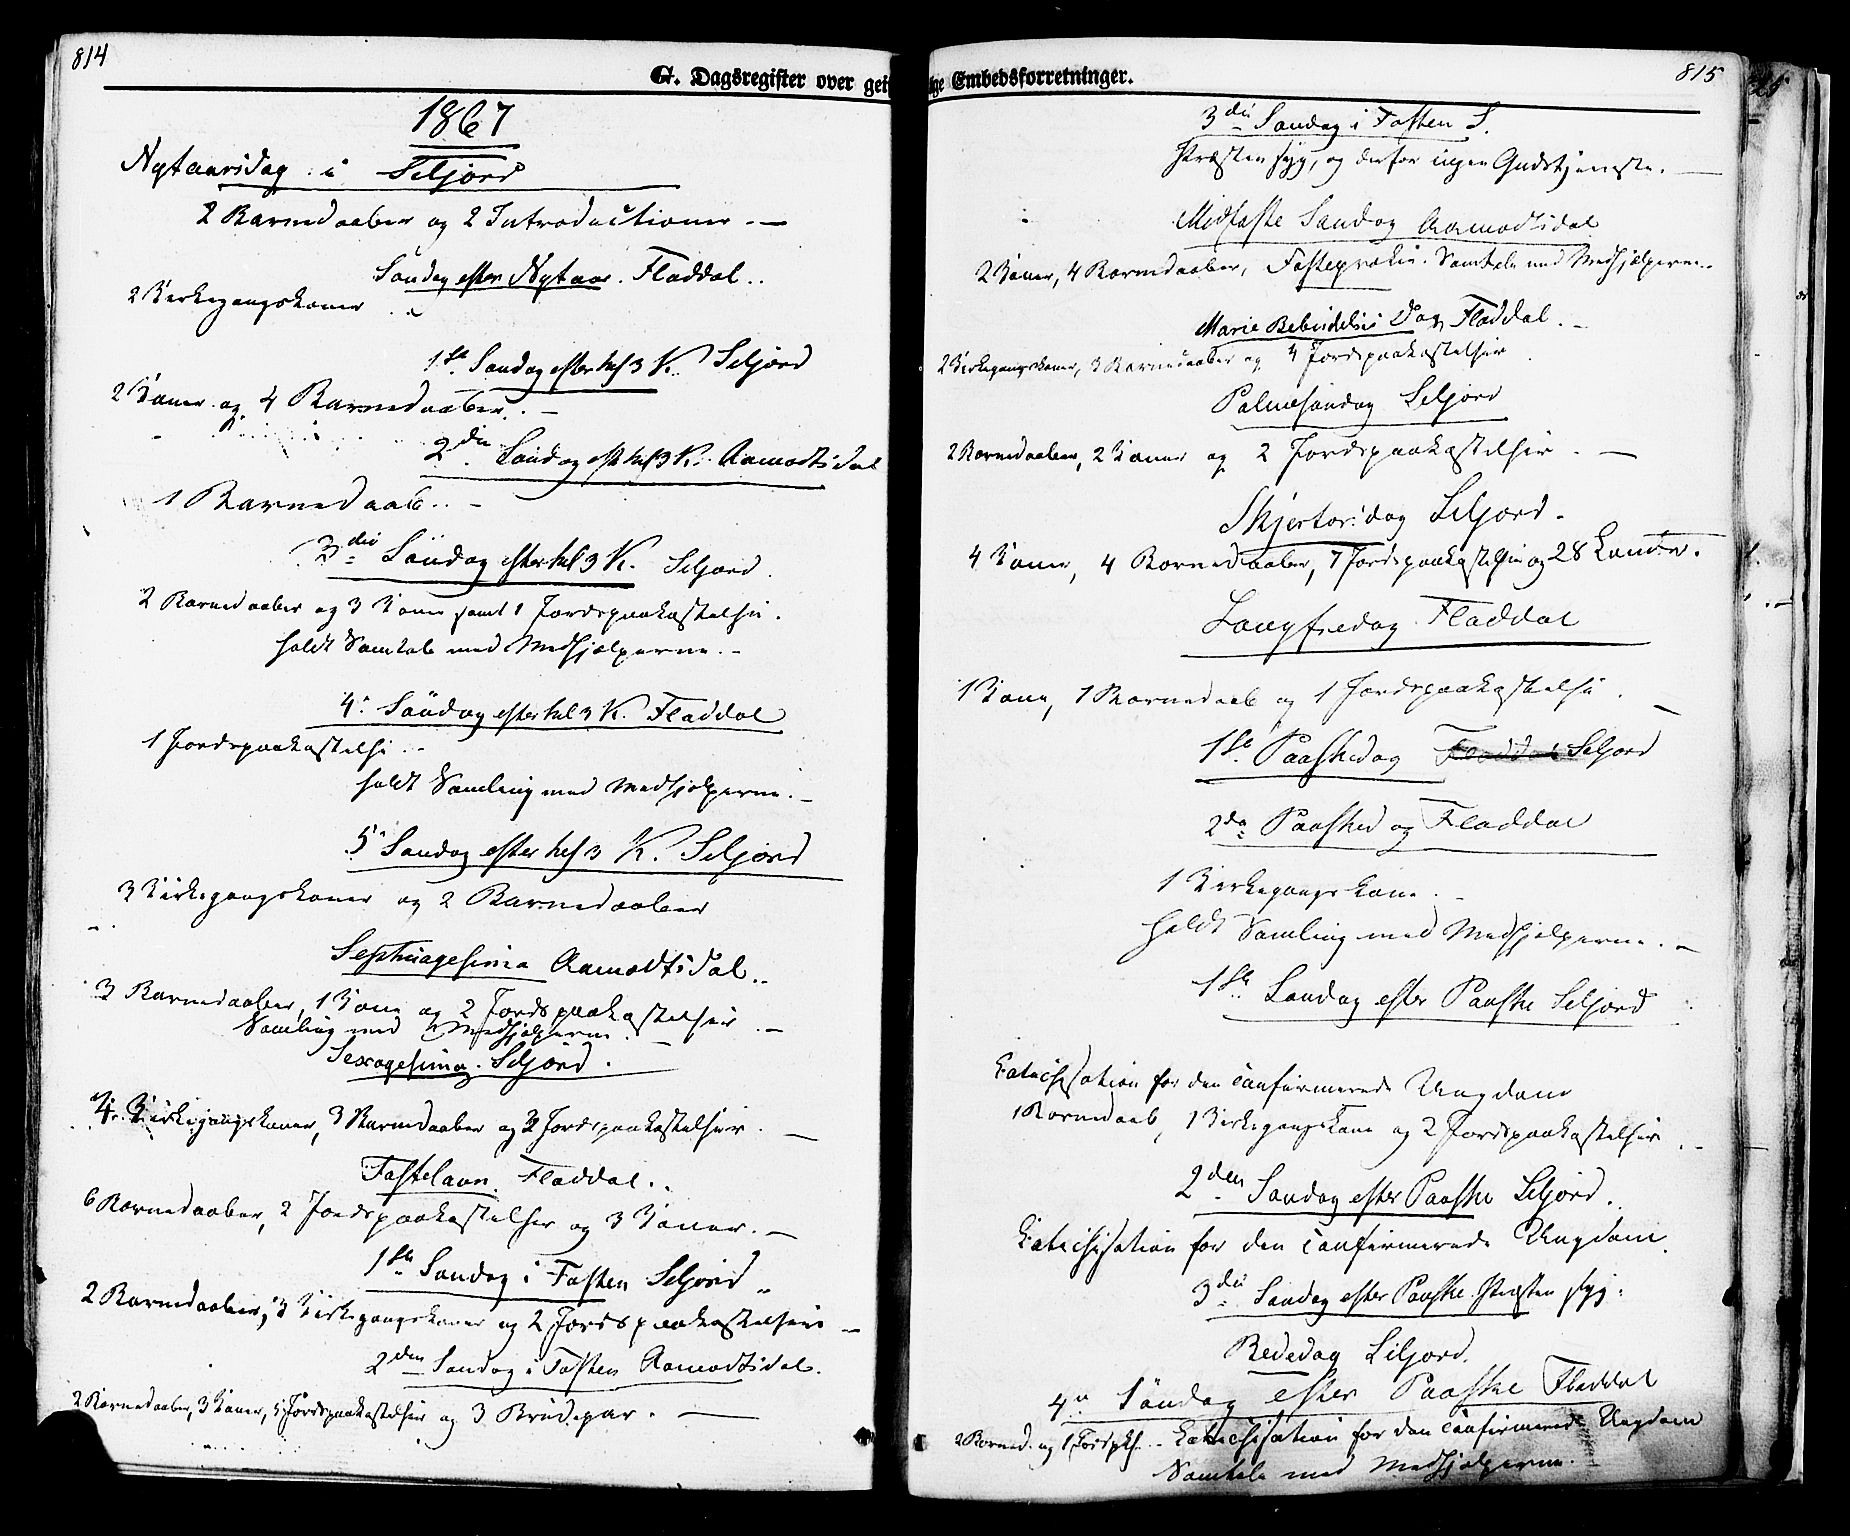 814
G. Dagsregister over geistlige Embedsforretninger.
1867
Nytaarsdag i Seljord
2 Barnedaaber og 2 Introductioner. —
Søndag efter Nytaar. Fladdal..
2 Kirkegangskoner
1ste Søndag efter hel 3 K. Seljord
2 Koner og 4 Barnedaaber. —
2den Søndag eft hel 3 K. Aamodtsdal
1 Barnedaab.. —
3die Söndag efter hel 3 K. Seljord.
2 Barnedaaber og 3 Koner samt 1 Jordspaakastelse.
holdt Samtale med Medhjælperne. —
4. Söndag efter hel 3 K. Fladdal
1 Jordspaakastelse. —
holdt Samling med Medhjælperne. —
5. Søndag efter hel 3 K. Seljord
3 Kirkegangskoner og 2 Barnedaaber
Septuagesima Aamodtsdal..
3 Barnedaaber, 1 Kone og 2 Jordspaakastelser. —
Samling med Medhjælperne. —
Sexagesima. Seljord.
4. Kirkegangskoner, 3 Barnedaaber og 3 Jordspaakastelser. —
Fastelavn. Fladdal..
6 Barnedaaber, 2 Jordspaakastelser og 3 Koner. —
1ste Søndag i Fasten Seljord
2 Barnedaaber, 3 Kirkegangskoner og 2 Jordspaakastelser —
2den Søndag i Fasten Aamodtsdal.
2 Barnedaaber, 3 Koner, 5 Jordspaakastelser og 3 Brudepar. —
815
3die Søndag i Fasten S.
Præsten syg, og derfor ingen Gudstjeneste. —
Midfaste Søndag Aamodtsdal
2 Koner, 4 Barnedaaber, Fasteprædiken. Samtale med Medhjælperne..
Marie Bebudelses Dag Fladdal. —
2 Kirkegangskoner, 3 Barnedaaber og 4 Jordspaakastelser
Palmesøndag Seljord
2 Barnedaaber, 2 Koner og 2 Jordspaakastelser. —
Skjertorsdag Seljord.
4 Koner, 4 Barnedaaber, 7 Jordspaakastelser og 28
Langfredag Fladdal
1 Kone, 1 Barnedaab og 1 Jordspaakastelse. —
1ste Paaskedag Fladdal Seljord
2den Paaskedag Fladdal
1 Kirkegangskone. —
holdt Samling med Medhjælperne. —
1ste Søndag efter Paaske Seljord
Catechisation for den confirmerede Ungdom
1 Barnedaab, 1 Kirkegangskone og 2 Jordspaakastelser. —
2den Søndag efter Paaske Seljord.
Catechisation for den confirmerede Ungdom.
3die Søndag efter Paaske. Præsten syg.
Bededag Seljord.
4de Søndag efter Paaske Fladdal
2 Barned. og 1 Jordpk. — Catechisation for den confirmerede Ungdom
Samtale med Medhjælperne. —